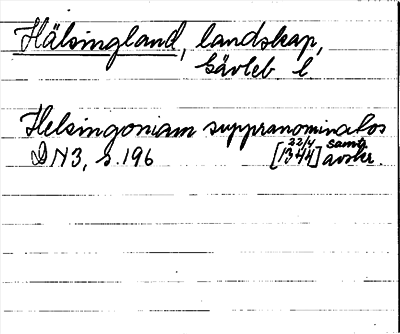 Hälsingland, landskap,
Gävleb l
Helsingoniam suppranominatos
DN3, s. 196 [22/4 1344] samt. avskr.